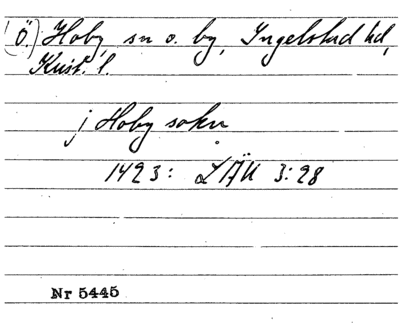 (Ö.) Hoby, sn o. by, Ingelstad hd,
Krist. l.
j Hoby sokn
1423: LÄU 3:28
Nr 5445